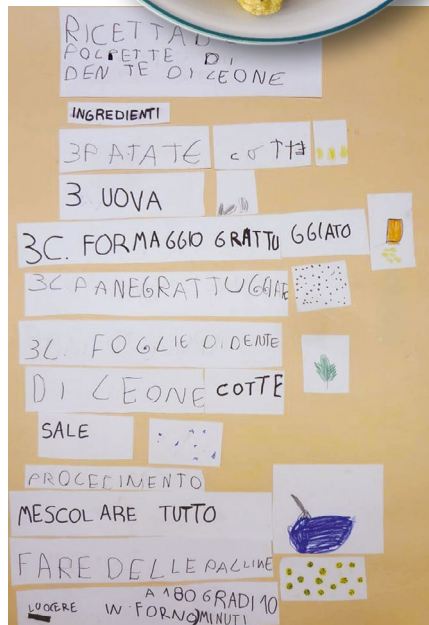 RICETTA
POLPETTE DI
DENTE DI LEONE
INGREDIENTI
3 PATATE COTTE
3 UOVA
3C. FORMAGGIO GRATTUGGIATO
3C PANEGRATTUGG
3C. FOGLIE DI DENTE
DI LEONE COTTE
SALE
PROCEDIMENTO
MESCOLARE TUTTO
FARE DELLE PALLINE
A 180 GRADI 10
CUOCERE IN FORNO MINUTI